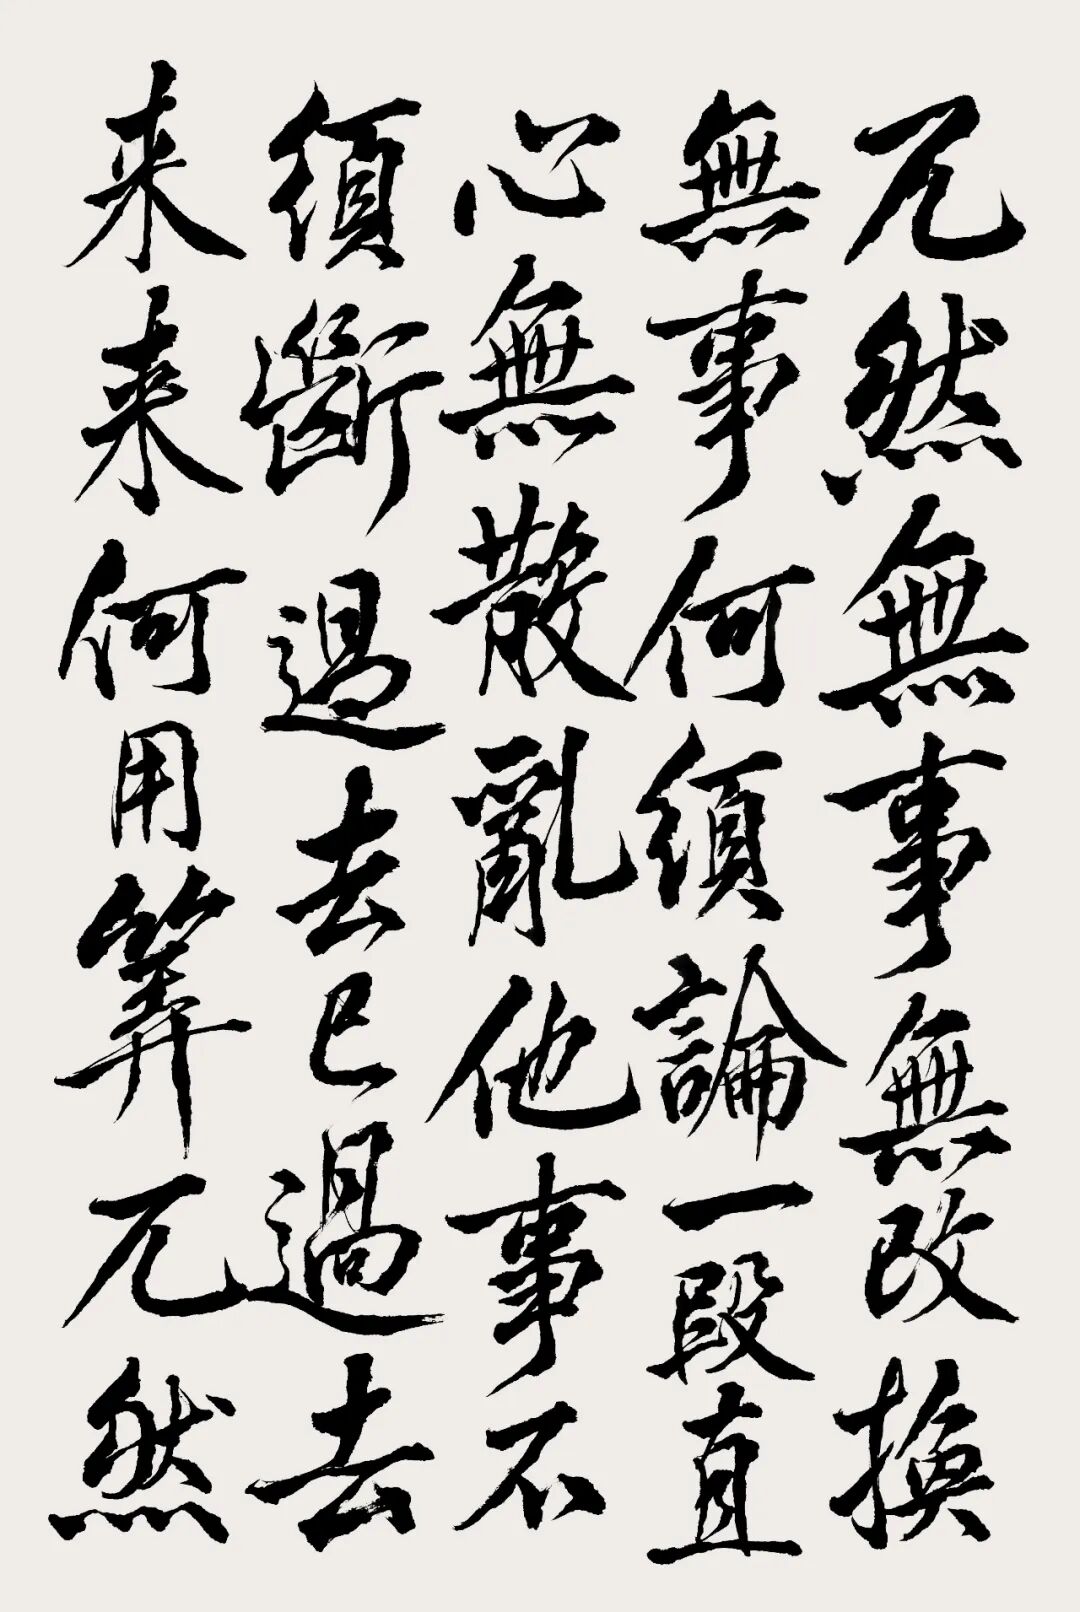 兀然無事無改換
無事何須論一段直
心無散亂他事不
須斷過去已過去
来来何用筭兀然